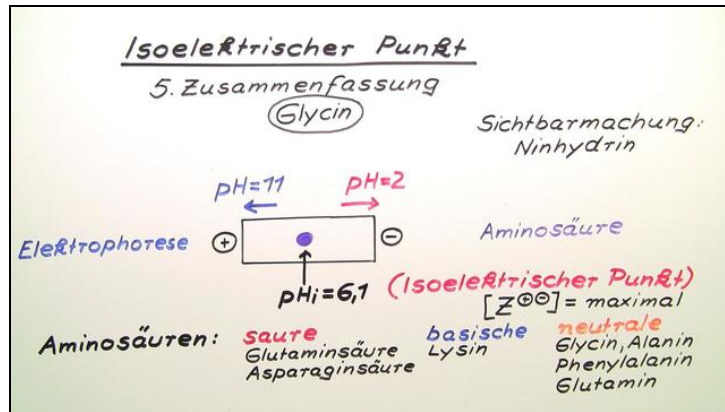 Isoelektrischer Punkt
5. Zusammenfassung
Glycin
Sichtbarmachung:
Ninhydrin
pH=11 pH=2
Elektrophorese + − Aminosäure
pHi=6,1 (Isoelektrischer Punkt)
[Z⊕⊖] = maximal
Aminosäuren: saure basische neutrale
Glutaminsäure Lysin Glycin, Alanin
Asparaginsäure Phenylalanin
Glutamin